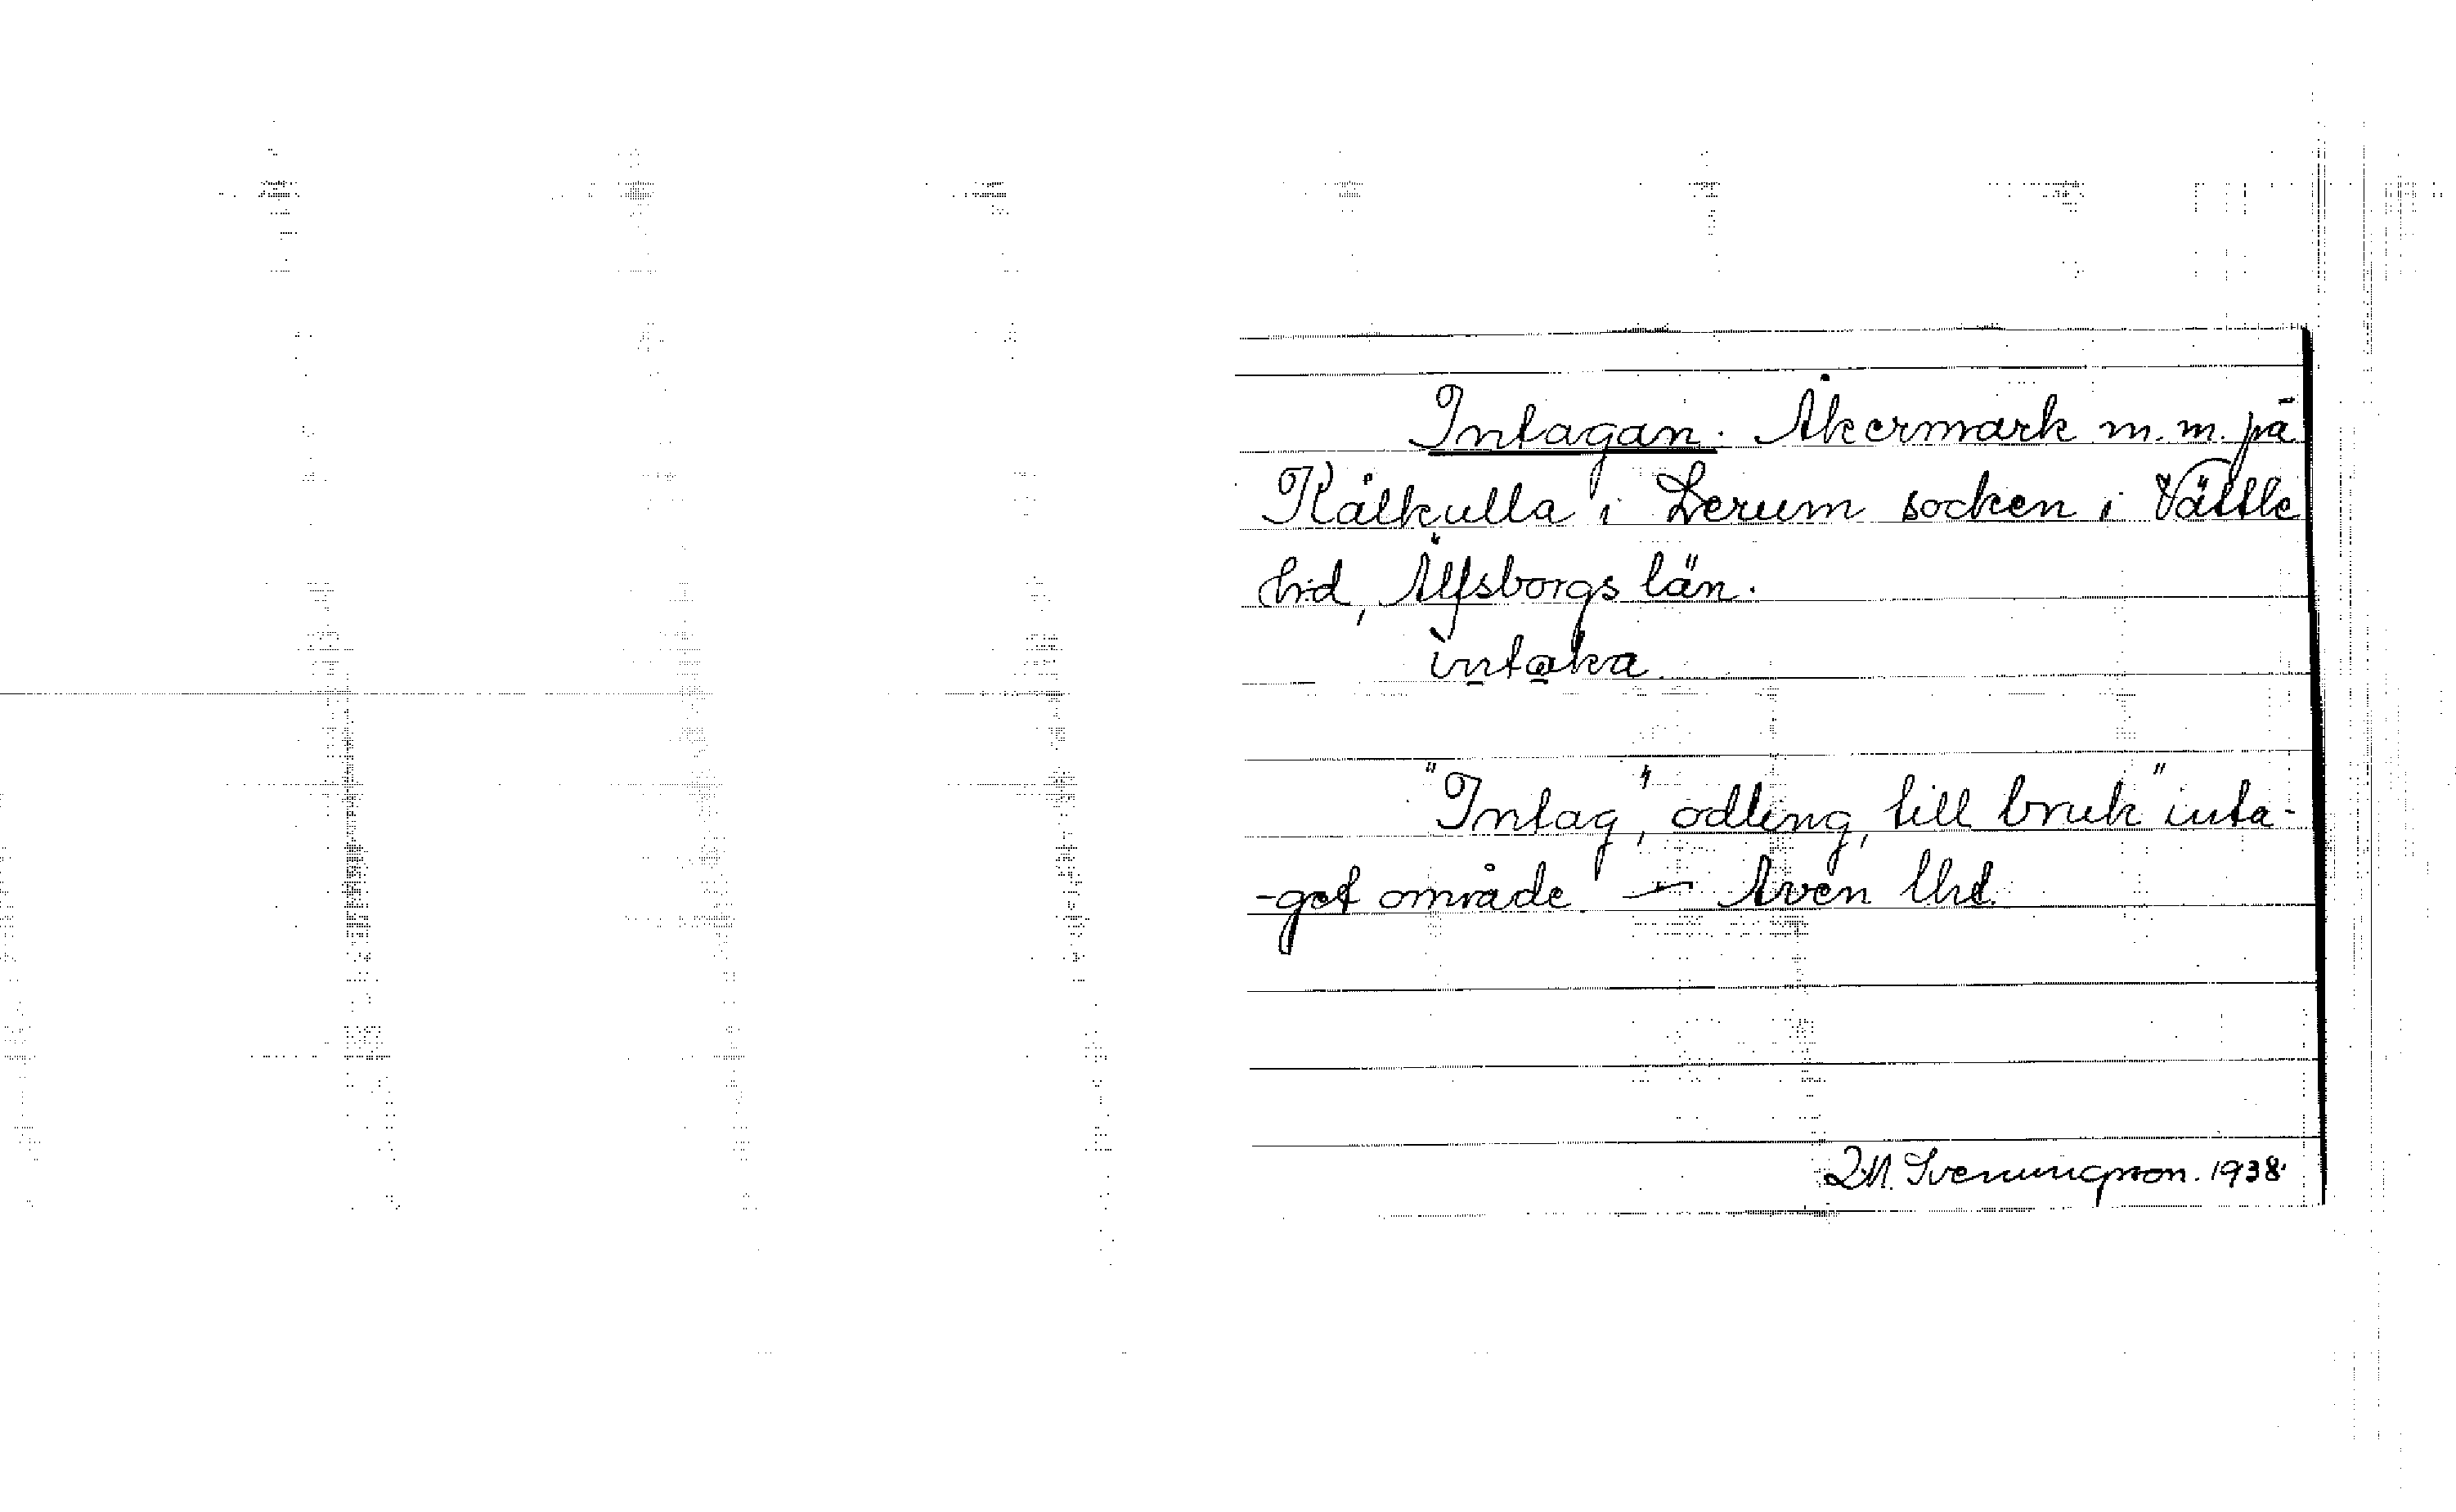 Intagan. Åkermark m.m. på
Kålkulla i Lerum socken i Vättle
hrd, Älfsborgs län.
intaka
"Intag", odling, till bruk "inta-
-get område. — Även Uhd.
Svenungsson. 1938